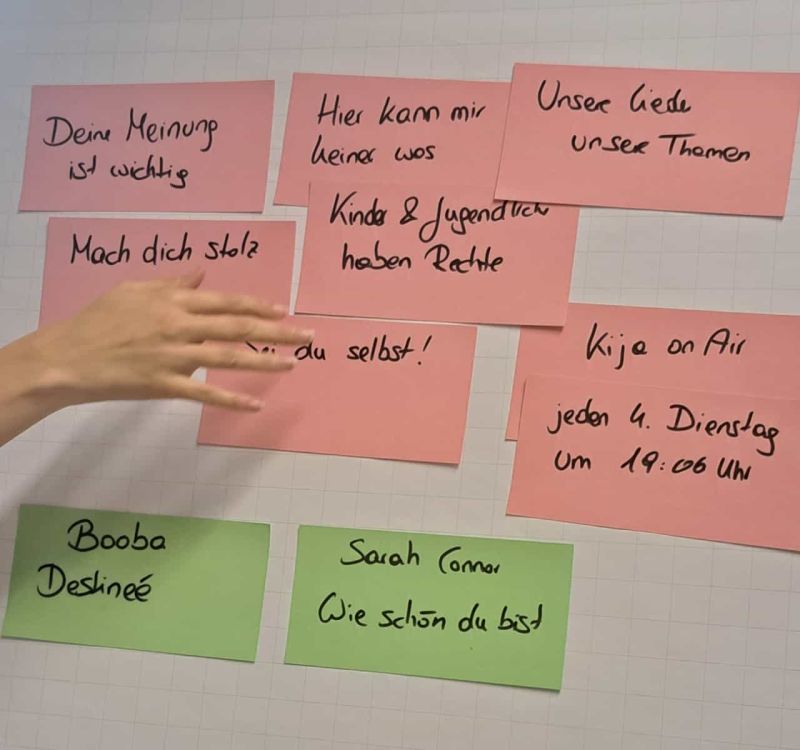 Deine Meinung
ist wichtig
Hier kann mir
keiner was
Unsere Liede
unsere Themen
Mach dich stolz
Kinder & Jugendlich
haben Rechte
du selbst!
Kija on Air
jeden 4. Dienstag
um 19:06 Uhr
Booba
Destineé
Sarah Connor
Wie schön du bist